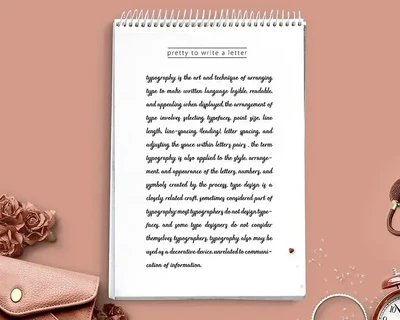 pretty to write a letter
typography is the art and technique of arranging
type to make written language legible, readable,
and appealing when displayed. the arrangement of
type involves selecting typefaces, point size, line
length, line-spacing (leading), letter spacing, and
adjusting the space within letters pairs . the term
typography is also applied to the style, arrange-
ment, and appearance of the letters, numbers, and
symbols created by the process. type design is a
closely related craft, sometimes considered part of
typography; most typographers do not design type-
faces, and some type designers do not consider
themselves typographers. typography also may be
used as a decorative device, unrelated to communi-
cation of information.